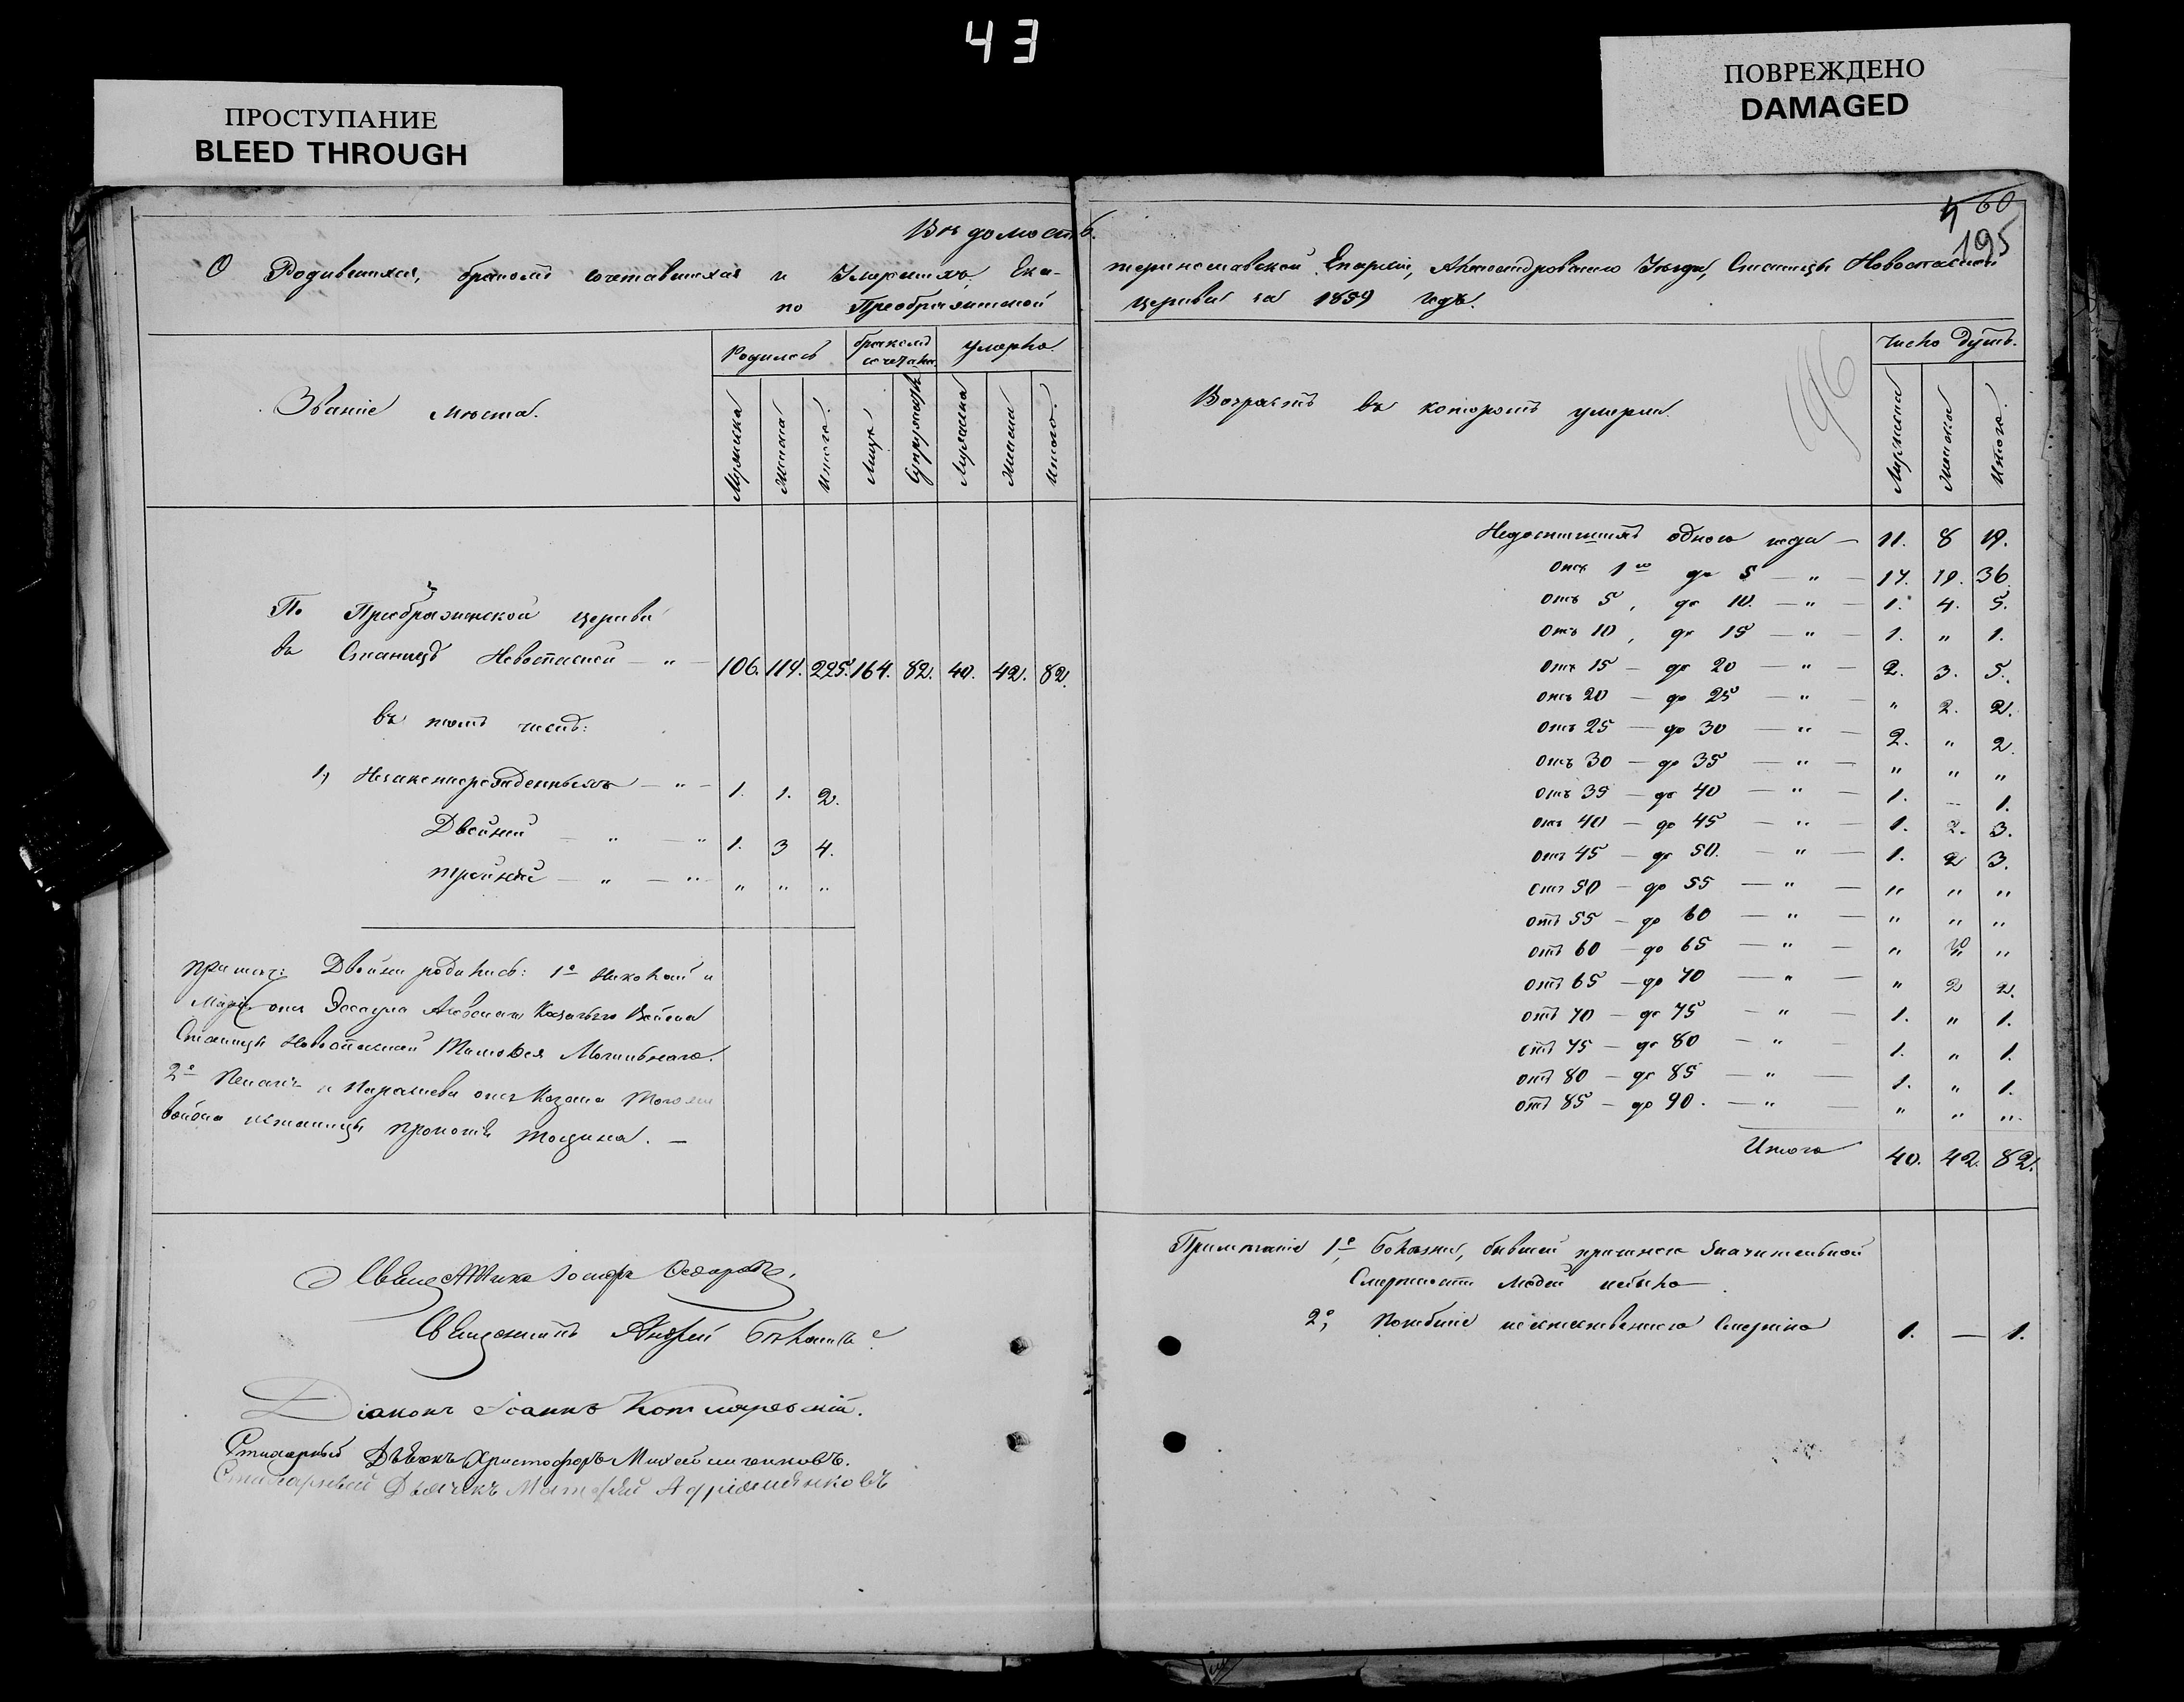 43
ПРОСТУПАНИЕ
BLEED THROUGH
ПОВРЕЖДЕНО
DAMAGED
4 60
195
196
Вѣдомость.
О Родившихся, бракомъ сочетавшихся и Умершихъ, Ека-
теринославской Епархіи, Александровскаго Уѣзда, Станицы Новоспасской
по Преображенской
церкви за 1859 годъ.
Званіе мѣста.
Родилось
бракомъ сочетано.
умерло.
Мужеска
Женска
Итого.
Лицъ
Супружествъ
Мужеска
Женска
Итого.
По Преображенской церкви
въ Станицѣ Новоспасской — " — 106. 119. 225. 164. 82. 40. 42. 82.
въ томъ числѣ:
1, Незаконнорожденныхъ — " — 1. 1. 2.
Двойни — " — " 1. 3 4.
тройни — " — " " " "
примѣч: Двойни родились: 1е Николай и
Марія отъ Эсаула Азовскаго Казачьяго Войска
Станицы Новоспасской Тимофея Могильнаго.
2е и Параскева отъ Козака тогоже
войска истаницы
Священникъ Іосифъ Ѳедоровъ.
Священникъ Андрей
Діаконъ Іоаннъ Котляревскій.
Стихарный Дьячокъ Христофоръ
Стихарный Дьячекъ Матѳей
Возрастъ въ которомъ умерли.
Число Душъ.
Мужеска
Женска
Итого.
Недостигшихъ одного года — 11. 8 19.
Отъ 1го до 5 — " — 17. 19. 36.
отъ 5, до 10. — " — 1. 4. 5.
Отъ 10, до 15 — " — 1. " 1.
Отъ 15 — до 20 — " — 2. 3. 5.
отъ 20 — до 25 — " " 2. 2.
отъ 25 — до 30 — " — 2. " 2.
отъ 30 — до 35 — " — " " "
отъ 35 — до 40 — " — 1. — 1.
отъ 40 — до 45 — " — 1. 2. 3.
отъ 45 — до 50. — " — 1. 2 3.
отъ 50 — до 55 — " — " " "
отъ 55 — до 60 — " — " " "
отъ 60 — до 65 — " — " " "
отъ 65 — до 70 — " — " 2 2.
отъ 70 — до 75 — " — 1. " 1.
отъ 75 — до 80 — " — 1. " 1.
отъ 80 — до 85 — " — 1. " 1.
отъ 85 — до 90. — " — " " "
Итого 40. 42. 82.
Примѣчаніе 1е, Болѣзни, бывшей причиною значительной
Смертности людей небыло.
2е, Погибшіе неестественною смертію 1. — 1.